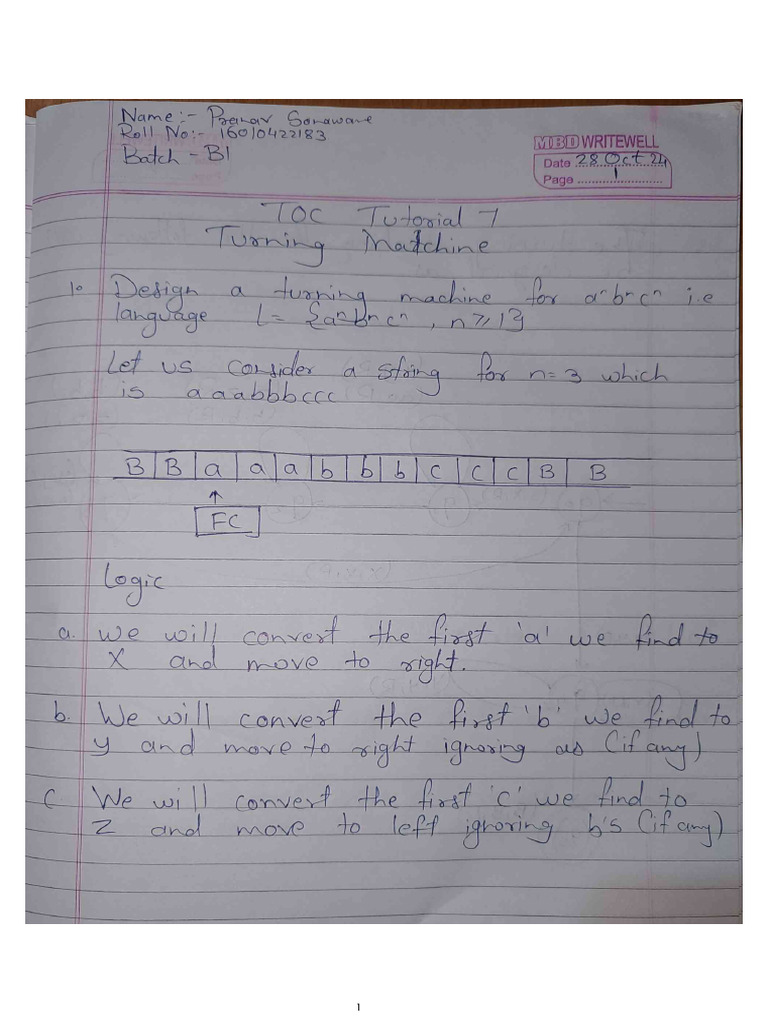 Name:- Pranav Sonawane
Roll No:- 16010422183
Batch - B1
MBD WRITEWELL
Date 28 Oct 24
Page 1
TOC Tutorial 7
Turning Matchine
1. Design a turning machine for aⁿbⁿcⁿ i.e
language L= {aⁿbⁿcⁿ, n≥1}
Let us consider a string for n=3 which
is aaabbbccc
B B a a a b b b c c c B B
↑
FC
Logic
a. We will convert the first 'a' we find to
X and move to right.
b. We will convert the first 'b' we find to
y and move to right ignoring as (if any)
c. We will convert the first 'c' we find to
Z and move to left ignoring b's (if any)
1